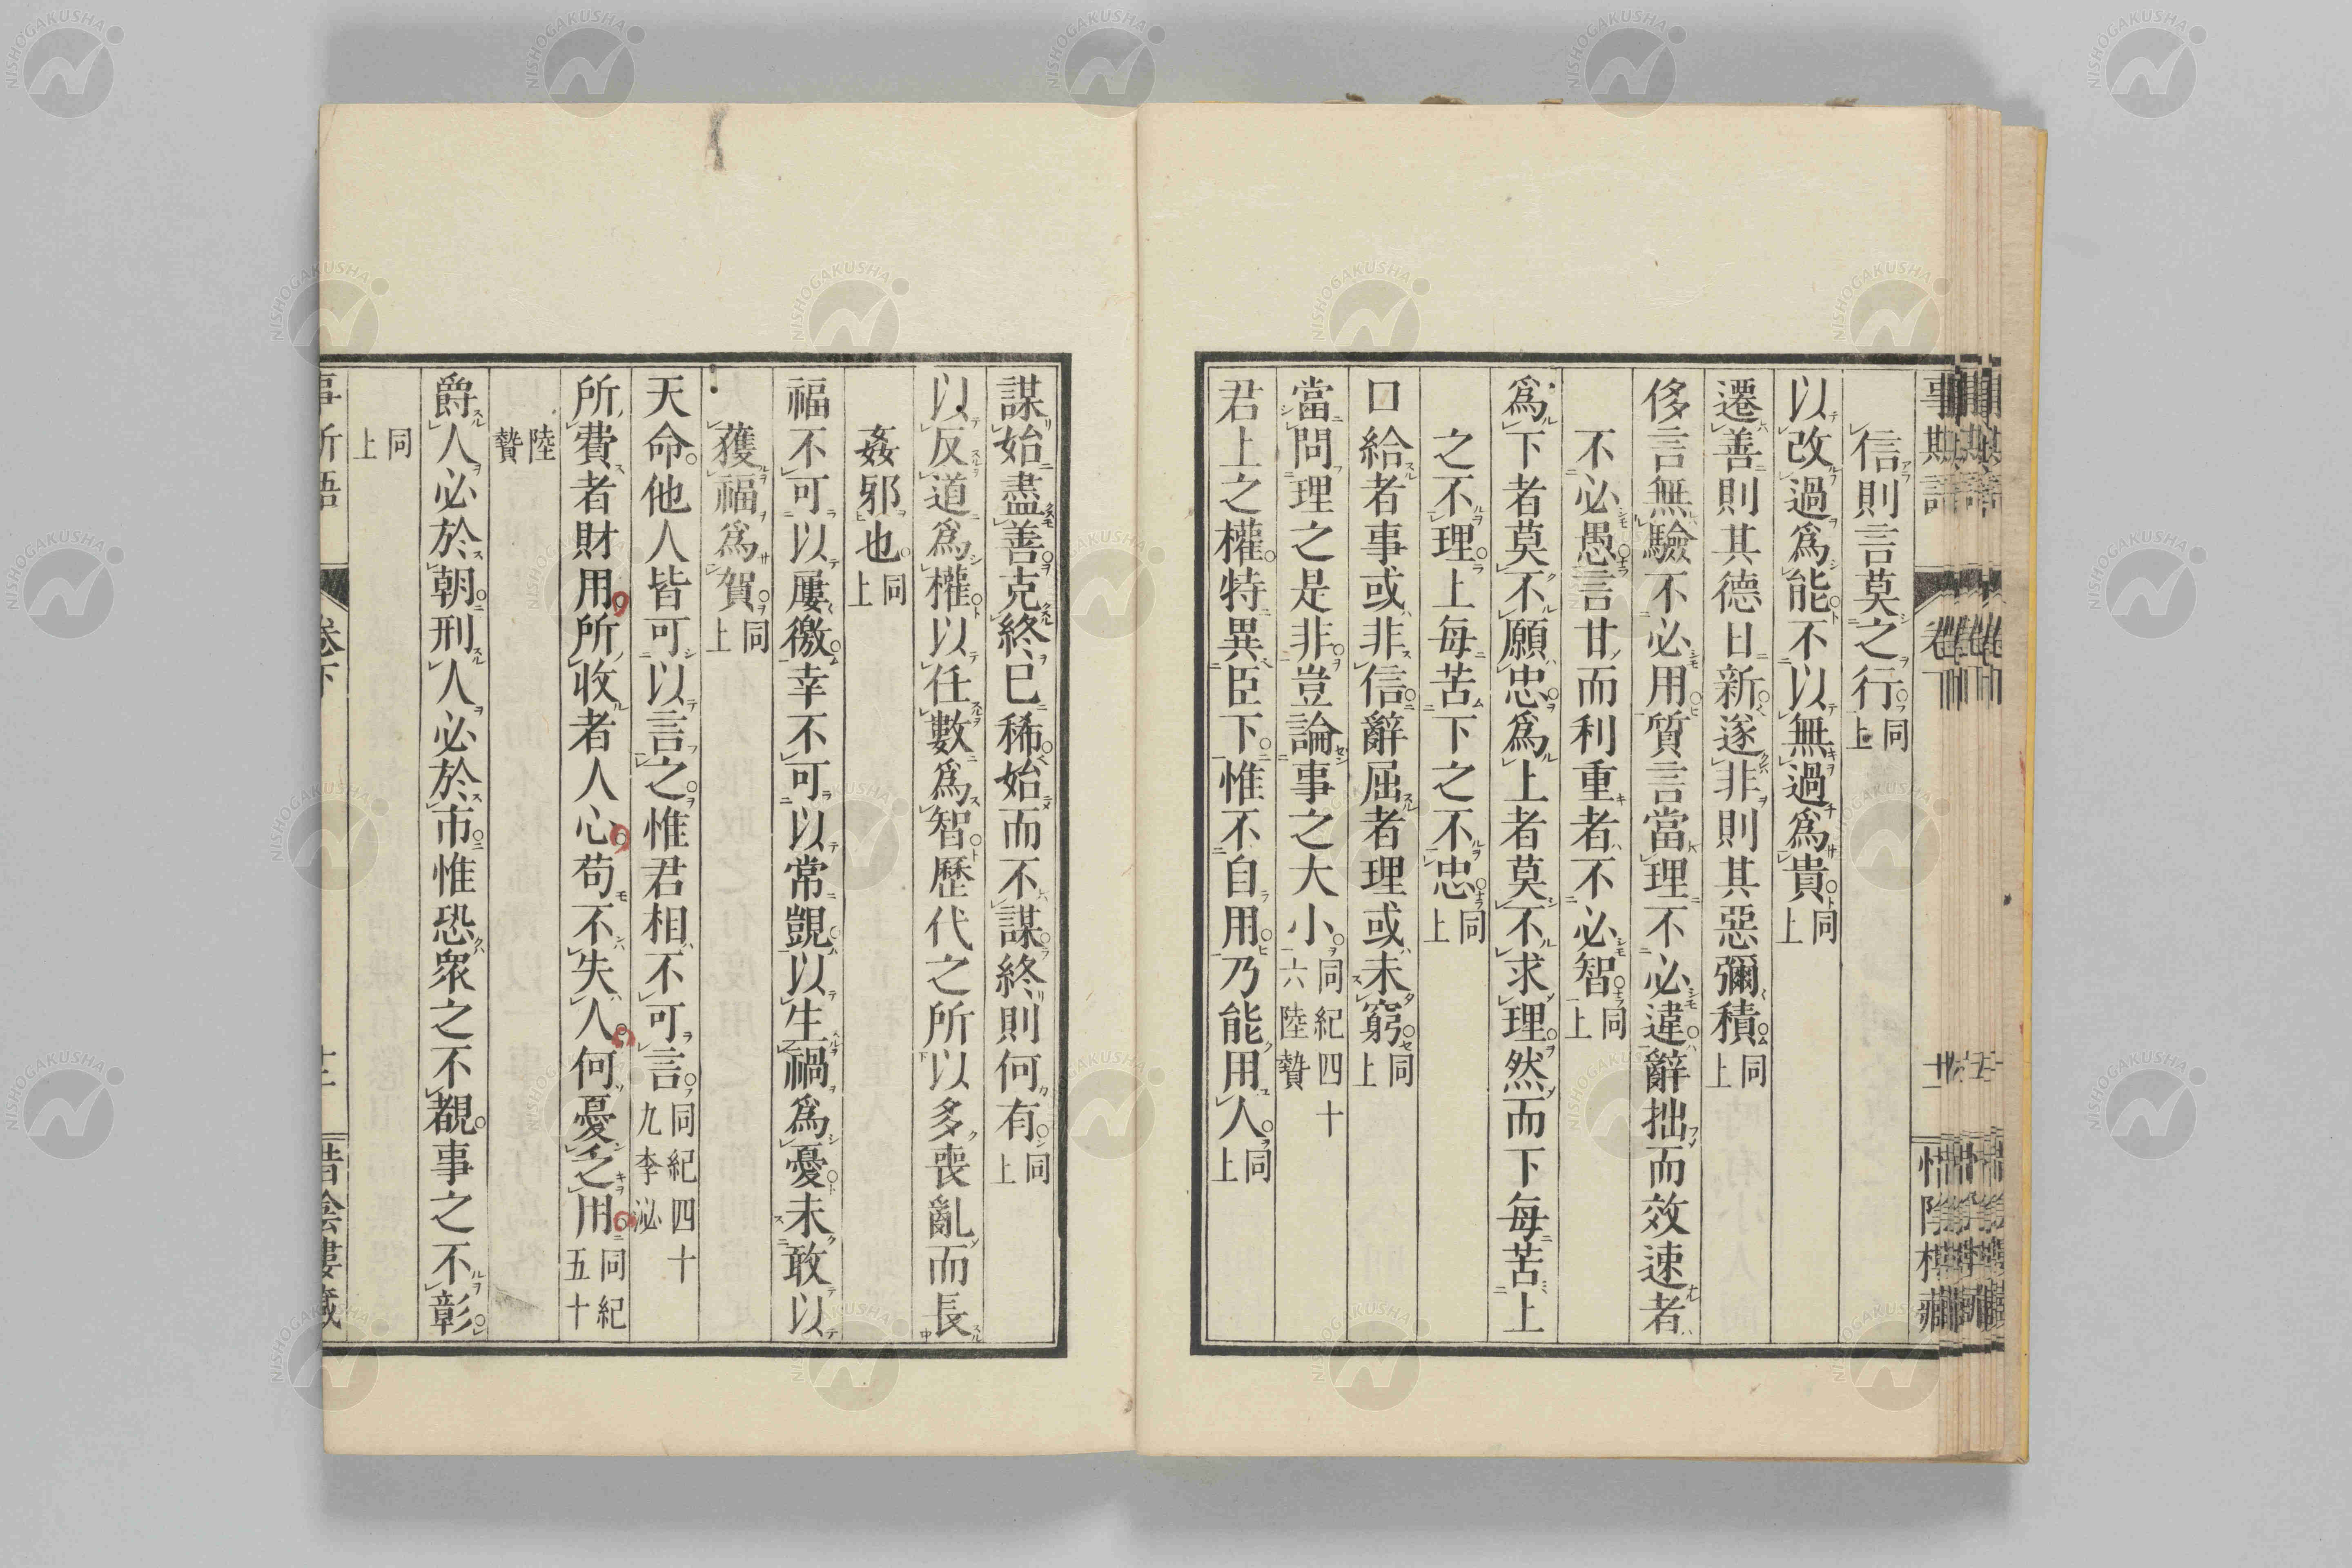 信則言莫之行同上
以改過爲能不以無過爲貴同上
遷善則其德日新遂非則其惡彌積同上
侈言無驗不必用質言當理不必違辭拙而效速者
不必愚言甘而利重者不必智同上
爲下者莫不願忠爲上者莫不求理然而下每苦上
之不理上每苦下之不忠同上
口給者事或非信辭屈者理或未窮同上
當問理之是非豈論事之大小同紀四十六陸贄
君上之權特異臣下惟不自用乃能用人同上
謀始盡善克終已稀始而不謀終則何有同上
以反道爲權以任數爲智歷代之所以多喪亂而長
姦邪也同上
福不可以屢徼幸不可以常覬以生禍爲憂未敢以
獲福爲賀同上
天命他人皆可以言之惟君相不可言同紀四十九李泌
所費者財用所收者人心苟不失人何憂乏用同紀五十
陸贄
爵人必於朝刑人必於市惟恐衆之不覩事之不彰
同上
NISHOGAKUSHA